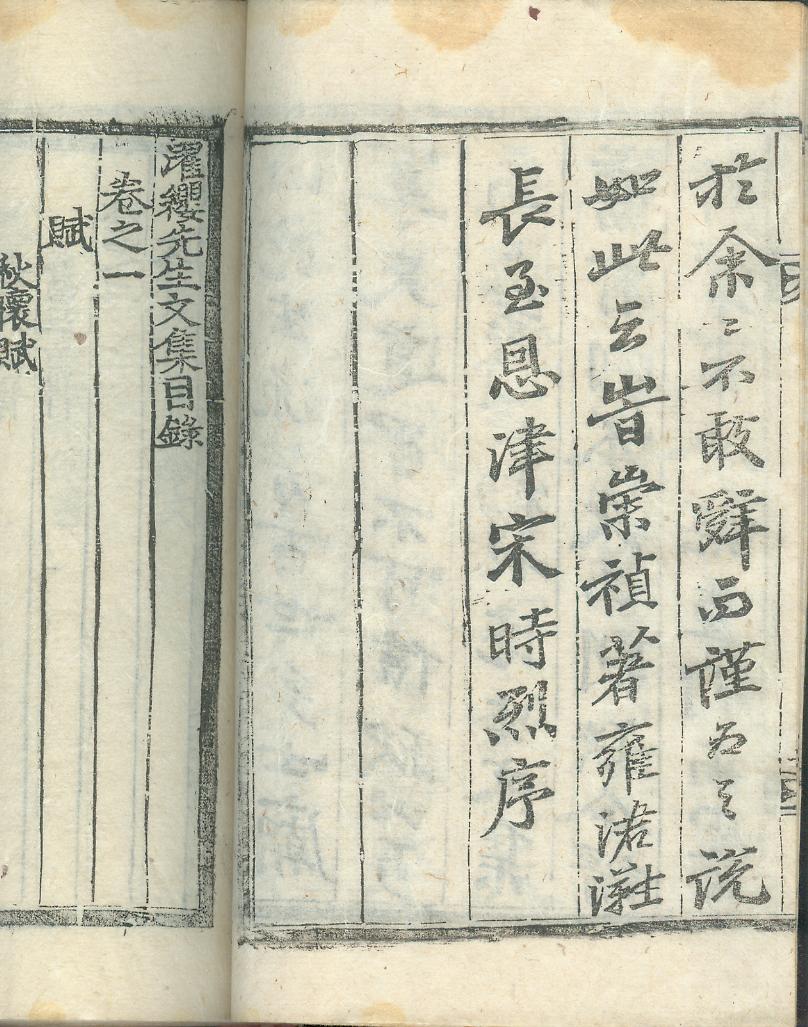 於余〻不敢辭而謹爲之說
如此云旹崇禎著雍涒灘
長至恩津宋時烈序
濯纓先生文集目錄
卷之一
賦
秋懷賦